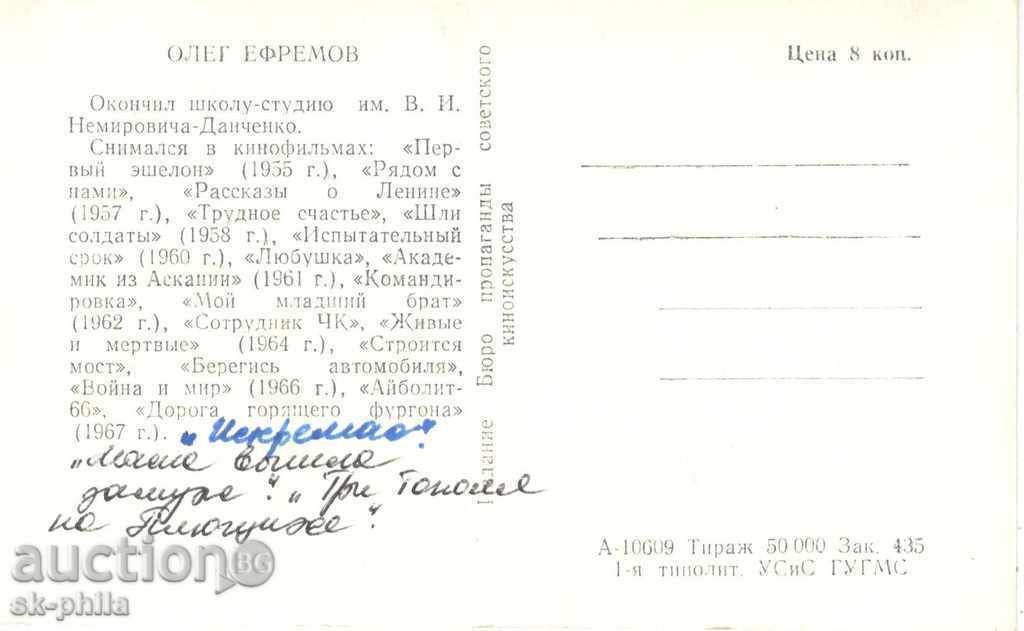 ОЛЕГ ЕФРЕМОВ
Окончил школу-студию им. В. И.
Немировича-Данченко.
Снимался в кинофильмах: «Пер-
вый эшелон» (1955 г.), «Рядом с
нами», «Рассказы о Ленине»
(1957 г.), «Трудное счастье», «Шли
солдаты» (1958 г.), «Испытательный
срок» (1960 г.), «Любушка», «Акаде-
мик из Аскании» (1961 г.), «Команди-
ровка», «Мой младший брат»
(1962 г.), «Сотрудник ЧК», «Живые
и мертвые» (1964 г.), «Строится
мост», «Берегись автомобиля»,
«Война и мир» (1966 г.), «Айболит-
66», «Дорога горящего фургона»
(1967 г.). „Искремас".
„Маша вышла
замуж". „Три Тополя
на Плющихе".
Издание Бюро пропаганды советского
киноискусства
Цена 8 коп.
А-10609 Тираж 50 000 Зак. 435
1-я типолит. УСиС ГУГМС
auction BG
sk-phila